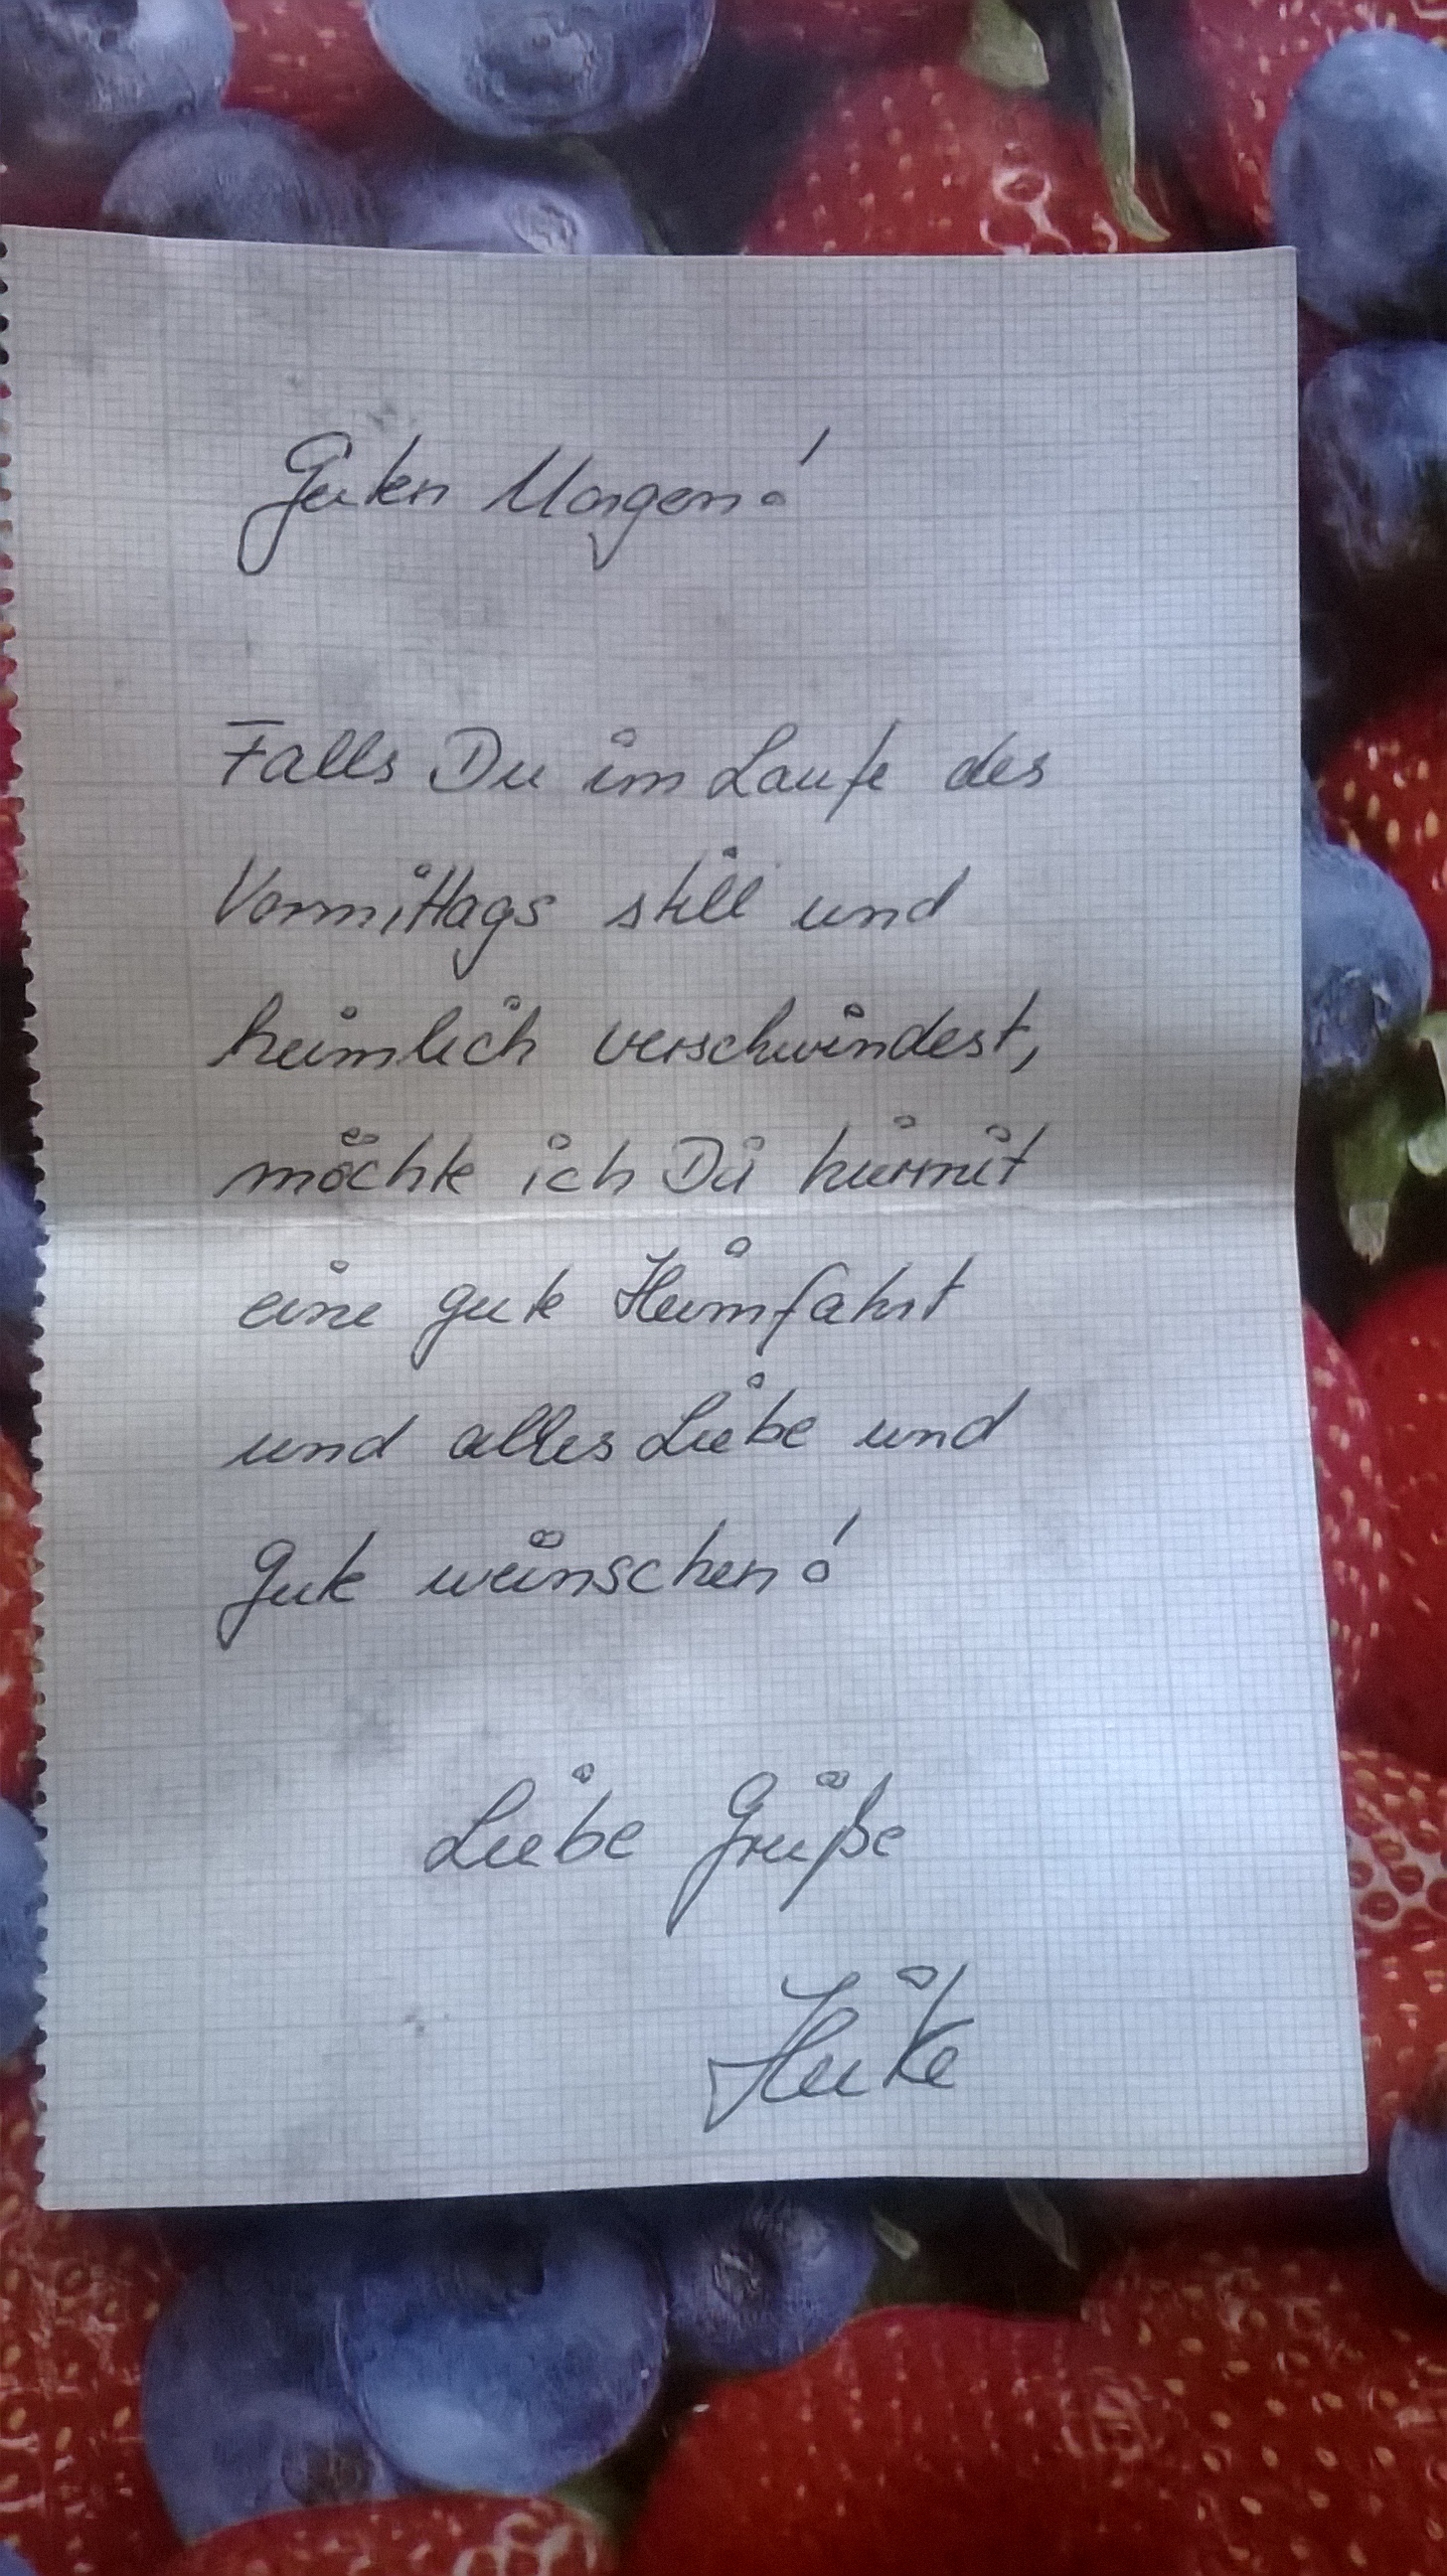 Guten Morgen!
Falls Du im Laufe des
Vormittags still und
heimlich verschwindest,
möchte ich Dir hiermit
eine gute Heimfahrt
und alles Liebe und
Gute wünschen!
Liebe Grüße
Heike